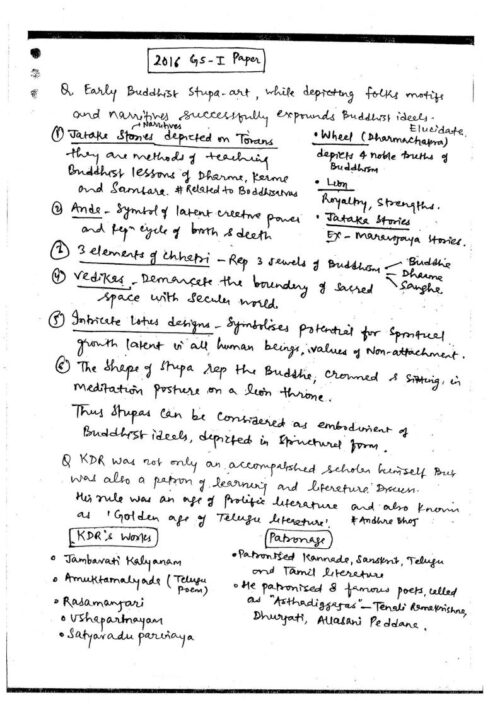 2016 GS-I Paper
Q Early Buddhist Stupa-art, while depicting folks motifs
and narritives successfully expounds Buddhist ideals.
Elucidate.
Narritives
① Jataka Stories depicted on Torans
they are methods of teaching
Buddhist lessons of Dharma, Karma
and Samsara. # Related to Boddhisatvas
• Wheel (Dharmachakra)
depicts 4 noble truths of
Buddhism
• Lion
Royalty, Strengths.
• Jataka Stories
Ex - Maravijaya Stories.
② Anda - Symbol of latent creative power
and Rep cycle of birth & death
③ 3 elements of Chhatri - Rep 3 jewels of Buddhism
Buddha
Dharma
Sangha
④ Vedikas - Demarcate the boundary of sacred
space with Secular world.
⑤ Intricate lotus designs - Symbolises potential for Spiritual
growth latent in all human beings, values of Non-attachment.
⑥ The Shape of Stupa rep the Buddha, crowned & sitting in
meditation posture on a lion throne.
Thus Stupas can be considered as embodiment of
Buddhist ideals, depicted in Structural form.
Q KDR was not only an accomplished scholar himself But
was also a patron of learning and literature Discuss.
His rule was an age of prolific literature and also known
as 'Golden age of Telugu literature'. # Andhra Bhoj
KDR's Works
• Jambavati Kalyanam
• Amuktamalyada (Telugu
Poem)
• Rasamanjari
• Ushaparinayam
• Satyavadu parinaya
Patronage
• Patronised Kannada, Sanskrit, Telugu
and Tamil literature
• He patronised 8 famous poets, called
as "Asthadiggajas" - Tenali Ramakrishna,
Dhurjati, Allasani Peddana.